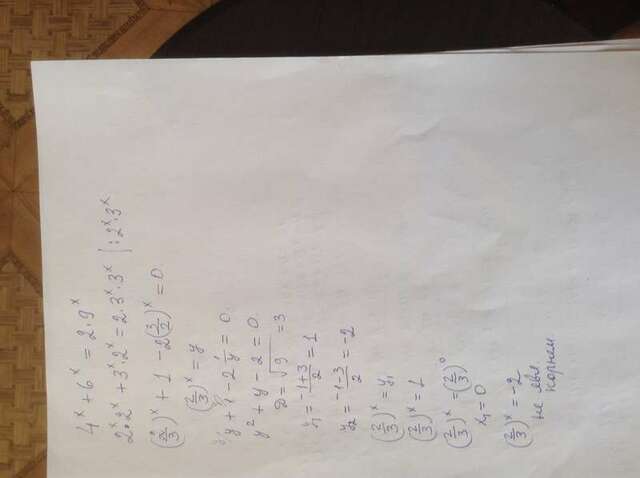 4^x + 6^x = 2·9^x
2^x·2^x + 3^x·2^x = 2·3^x·3^x |:2^x·3^x
(2/3)^x + 1 - 2(3/2)^x = 0.
(2/3)^x = y
y + 1 - 2 1/y = 0.
y² + y - 2 = 0.
D = √9 = 3
y₁ = (-1+3)/2 = 1
y₂ = (-1-3)/2 = -2
(2/3)^x = y₁
(2/3)^x = 1
(2/3)^x = (2/3)^0
x₁ = 0
(2/3)^x = -2
не явл.
корнем